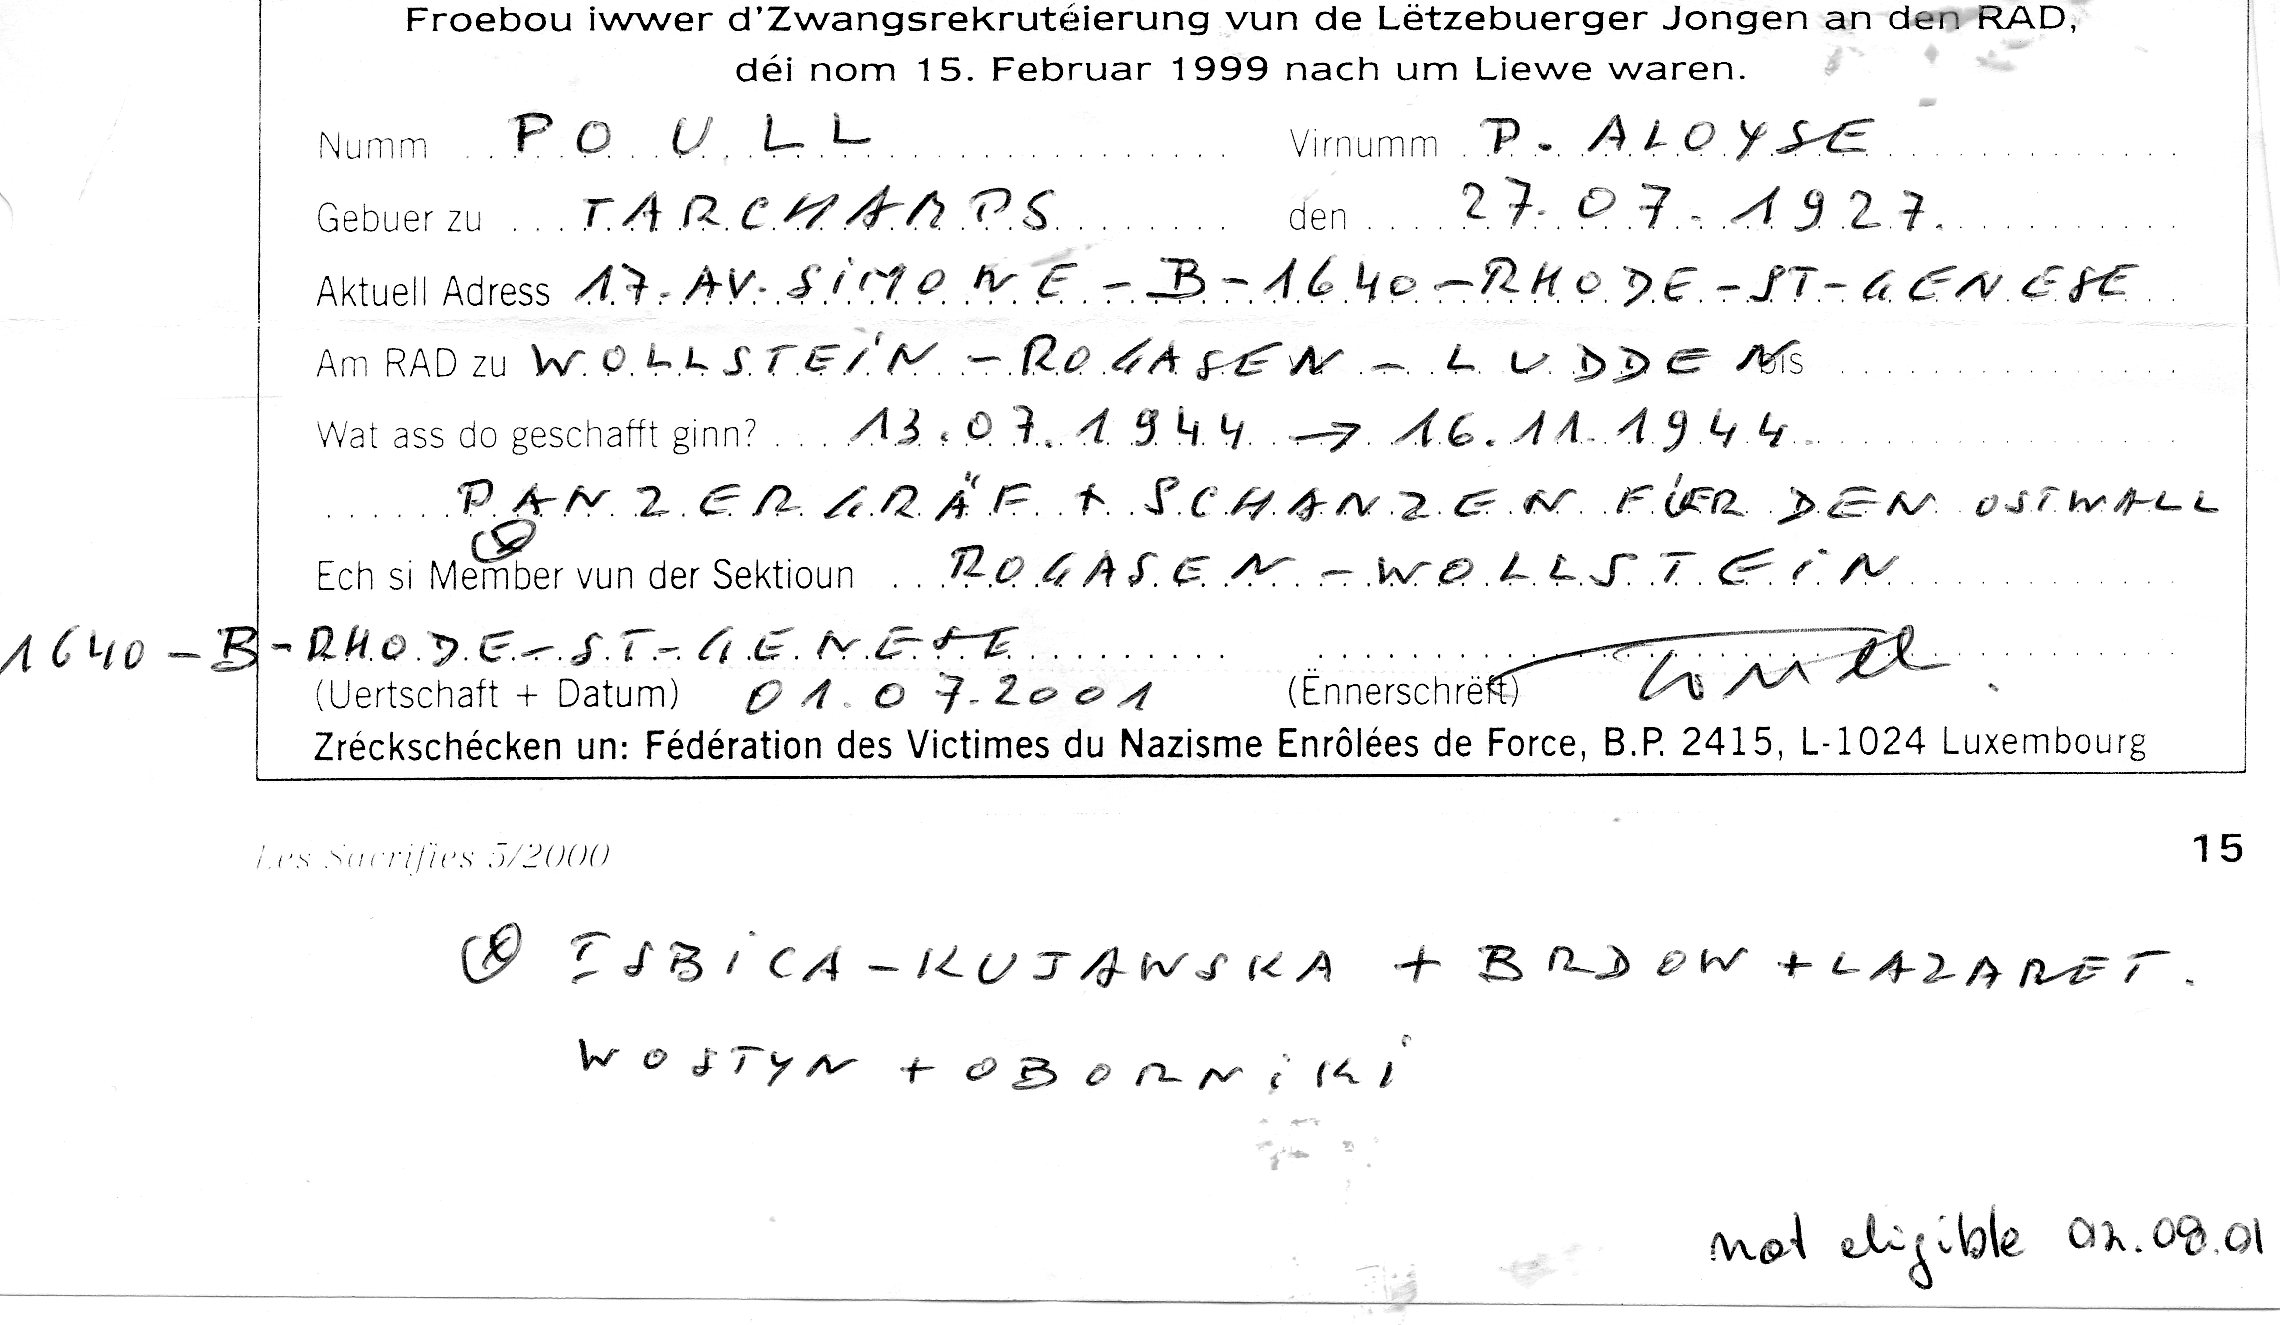 Froebou iwwer d'Zwangsrekrutéierung vun de Lëtzebuerger Jongen an den RAD,
déi nom 15. Februar 1999 nach um Liewe waren.
Numm POULL Virnumm P. ALOYSE
Gebuer zu TARCHAMPS den 27.07.1927.
Aktuell Adress 17. AV. SIMONE - B - 1640 - RHODE - ST - GENESE
Am RAD zu WOLLSTEIN - ROGASEN - LUDDEN bis
Wat ass do geschafft ginn? 13.07.1944 → 16.11.1944.
PANZERGRÄF + SCHANZEN FÜR DEN OSTWALL
Ech si Member vun der Sektioun ROGASEN - WOLLSTEIN
1640 - B - RHODE - ST - GENESE
(Uertschaft + Datum) 01.07.2001 (Ënnerschrëft)
Zréckschécken un: Fédération des Victimes du Nazisme Enrôlées de Force, B.P. 2415, L-1024 Luxembourg
Les Sacrifies 5/2000 15
ISBICA - KUJAWSKA + BRDOW + LAZARET.
WOSTYN + OBORNIKI
not eligible 02.08.01